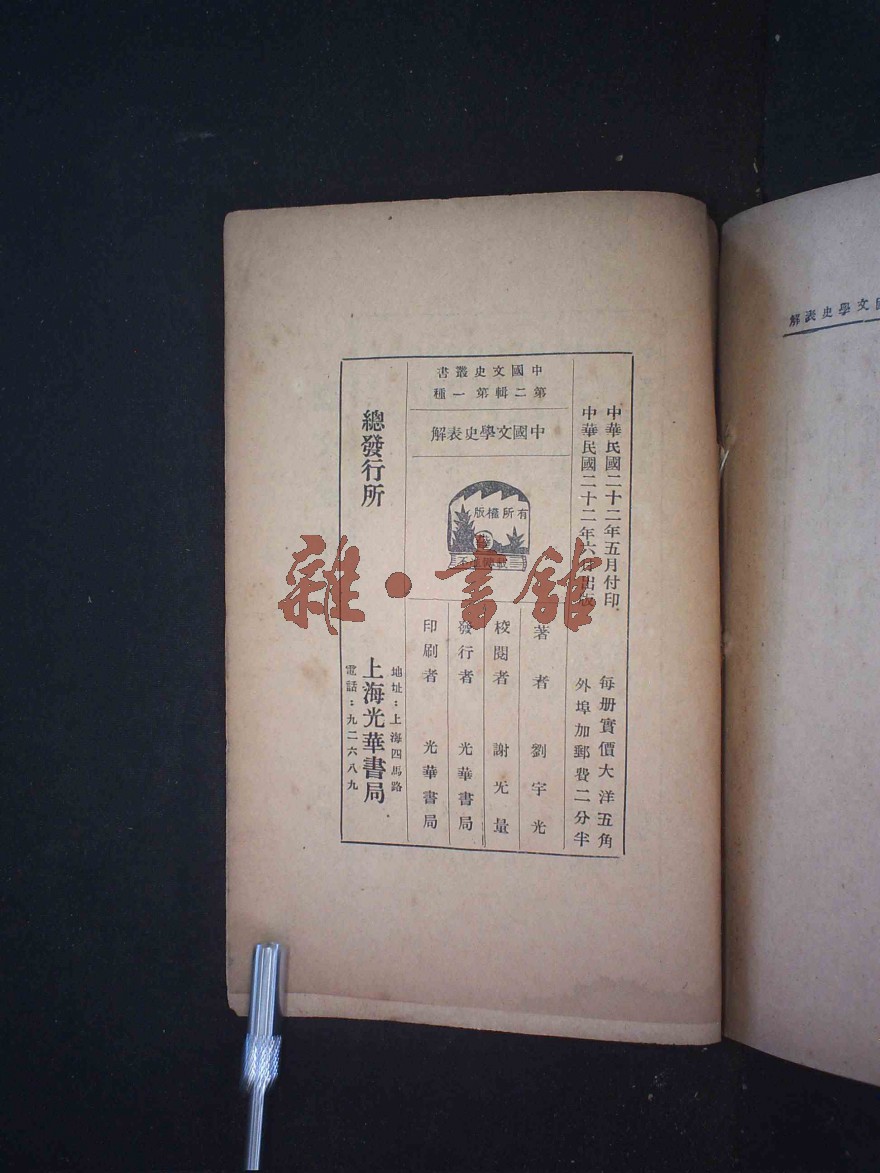 中華民國二十二年五月付印
中華民國二十二年六月出版
每册實價大洋五角
外埠加郵費二分半
中國文史叢書
第二輯第一種
中國文學史表解
有所權版
著者 劉宇光
校閱者 謝无量
發行者 光華書局
印刷者 光華書局
總發行所
上海光華書局
地址：上海四馬路
電話：九二六八九
文學史表解
雜·書館